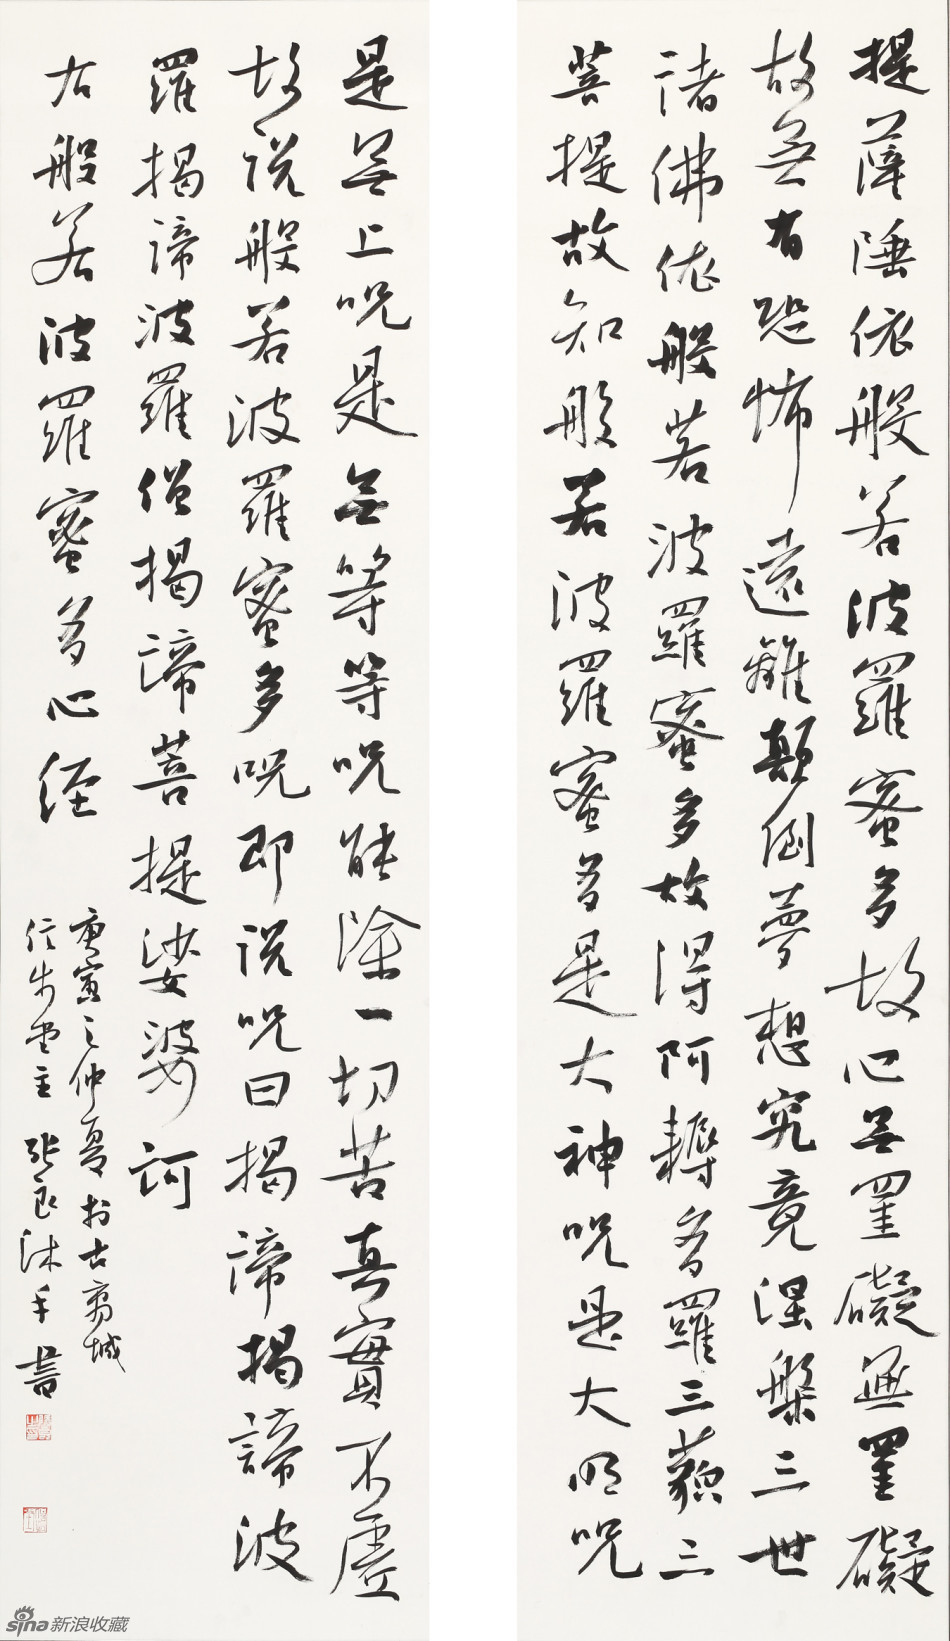 提薩埵依般若波羅蜜多故心無罣礙無罣礙
故無有恐怖遠離顛倒夢想究竟涅槃三世
諸佛依般若波羅蜜多故得阿耨多羅三藐三
菩提故知般若波羅蜜多是大神咒是大明咒
是無上咒是無等等咒能除一切苦真實不虛
故說般若波羅蜜多咒即說咒曰揭諦揭諦波
羅揭諦波羅僧揭諦菩提娑婆訶
右般若波羅蜜多心經
庚寅之仲夏於古商城
堂主 張良沐手書
sina新浪收藏